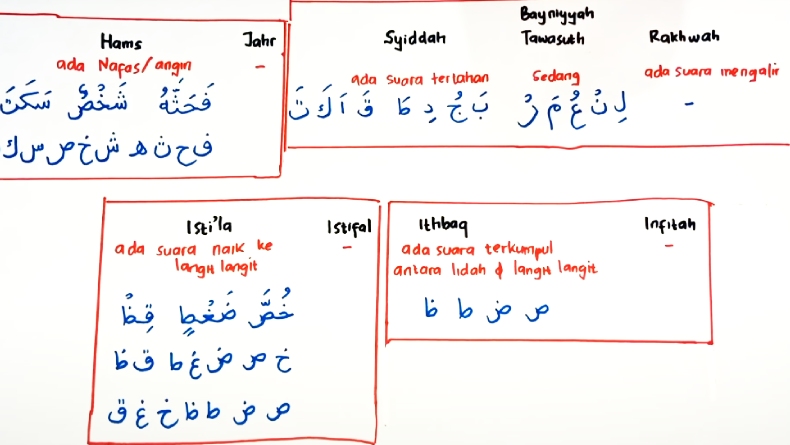 Hams Jahr
ada Nafas/angin -
فَحَثَّهُ شَخْصٌ سَكَتَ
ف ح ث ه ش خ ص س ك
Bayniyyah
Syiddah Tawasuth Rakhwah
ada suara tertahan Sedang ada suara mengalir
لِ نْ عُ مَ رْ -
بَ جُ دِ ط قَ اَ كَ تَ
Isti'la Istifal
ada suara naik ke -
langit langit
خُصَّ ضَغْطٍ قِظْ
خ ص ض غ ط ق ظ
ص ض ط ظ خ غ ق
Ithbaq Infitah
ada suara terkumpul -
antara lidah & langit langit
ص ض ط ظ